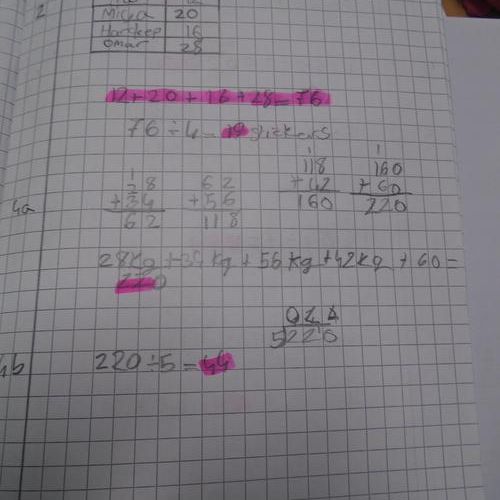 2
Micha 20
Hardeep 16
Omar 28
12 + 20 + 16 + 28 = 76
76 ÷ 4 = 19 stickers
4a
28 62 118 160
+34 +56 +42 +60
62 118 160 220
28kg + 34kg + 56kg + 42kg + 60 =
220
044
5 220
4b 220 ÷ 5 = 44